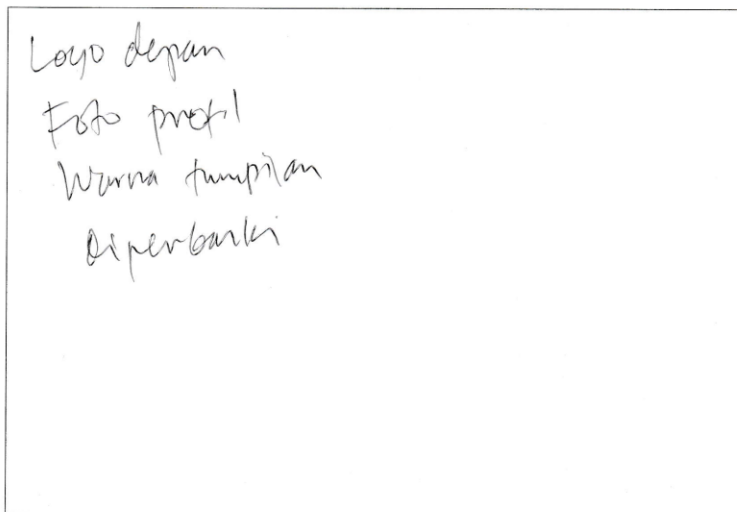 Logo depan
Foto profil
Warna tampilan
Diperbaiki